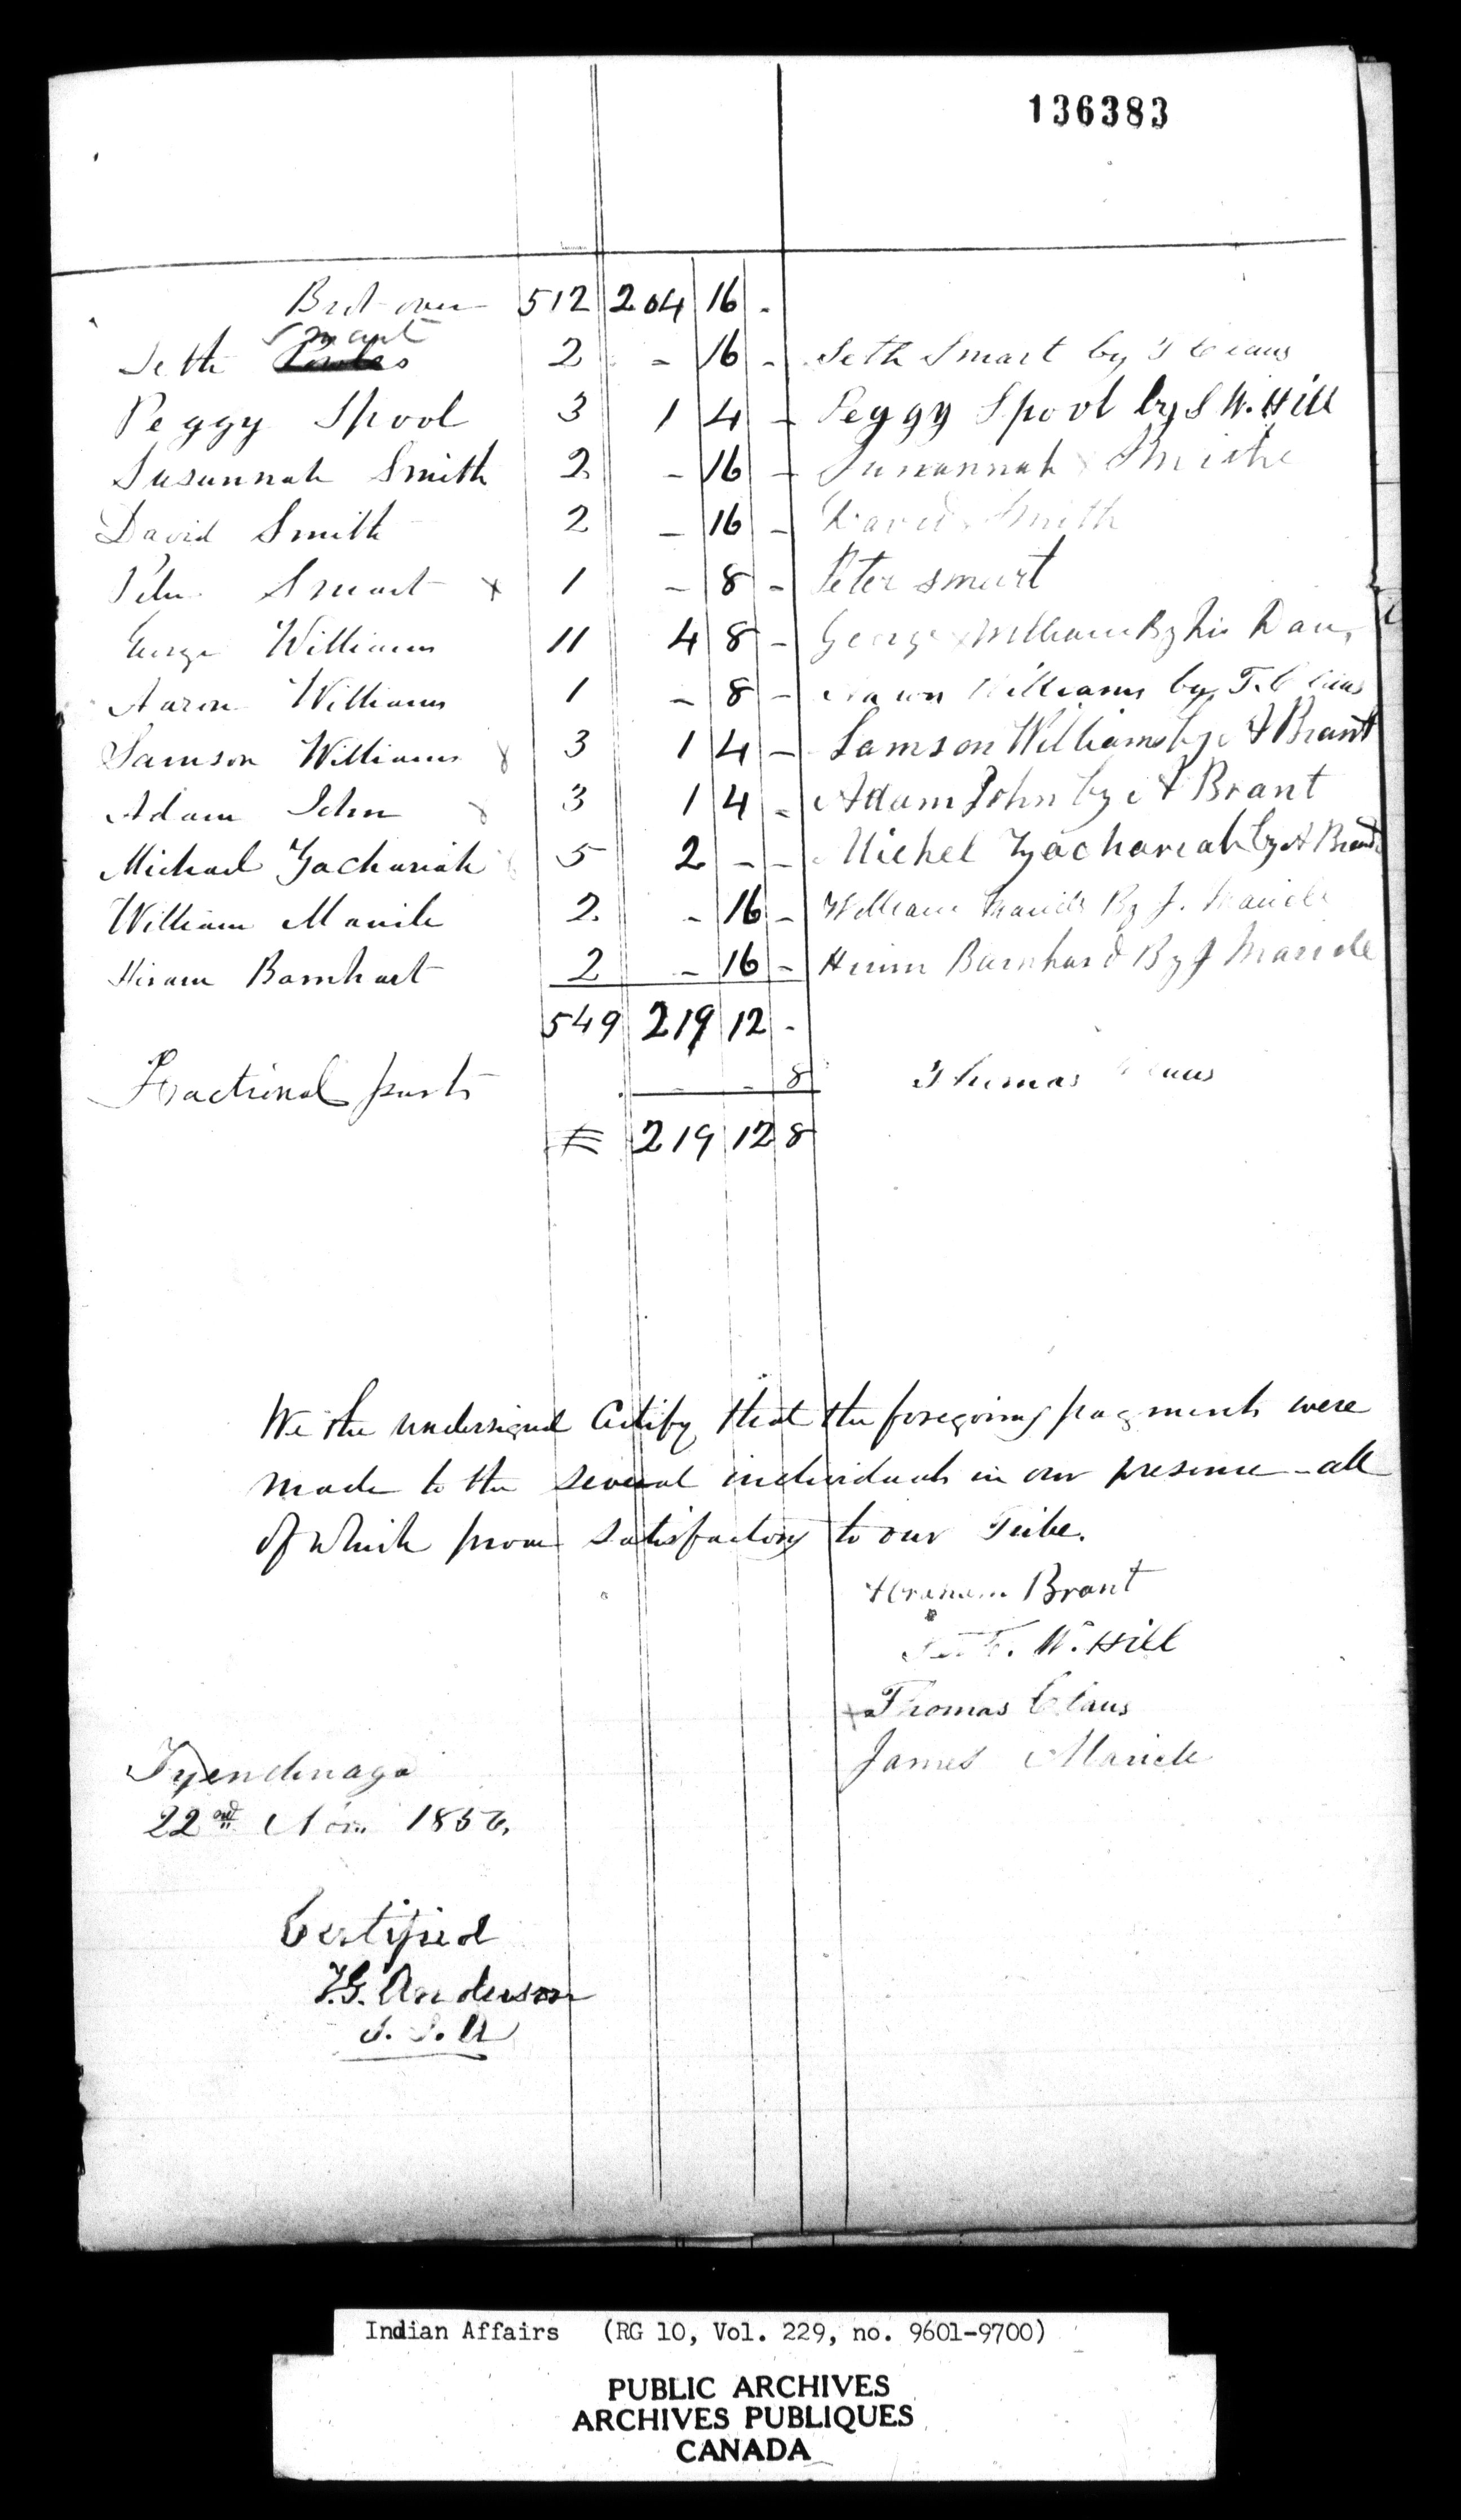 136383
Brot over 512 204 16 -
Seth Smart 2 - 16 - Seth Smart by T Claus
Peggy Spool 3 1 4 - Peggy Spool by S W. Hill
Susannah Smith 2 - 16 - Susannah x Smith
David Smith 2 - 16 - David Smith
Peter Smart x 1 - 8 - Peter smart
George Williams 11 4 8 - George x William By his Dau,
Aaron Williams 1 - 8 - Aaron Williams by T. Claus
Samson Williams 3 1 4 - Samson Williams by A Brant
Adam John 3 1 4 - Adam John by A Brant
Michael Zachariah 5 2 - - Michel Zachariah by A Brant
William Maricle 2 - 16 - William Maricle By J. Maricle
Hiram Barnhart 2 - 16 - Hirim Barnhard By J Maricle
549 219 12 -
Fractional parts - - 8 Thomas Claus
£ 219 12 8
We the undersigned Certify that the foregoing payments were
made to the several individuals in our presence - all
of which prove satisfactory to our Tribe.
Abraham Brant
Seth W. Hill
Thomas Claus
James Maricle
Tyendinaga
22nd Nov. 1856.
Certified
T.G. Anderson
S. I. A
Indian Affairs (RG 10, Vol. 229, no. 9601-9700)
PUBLIC ARCHIVES
ARCHIVES PUBLIQUES
CANADA